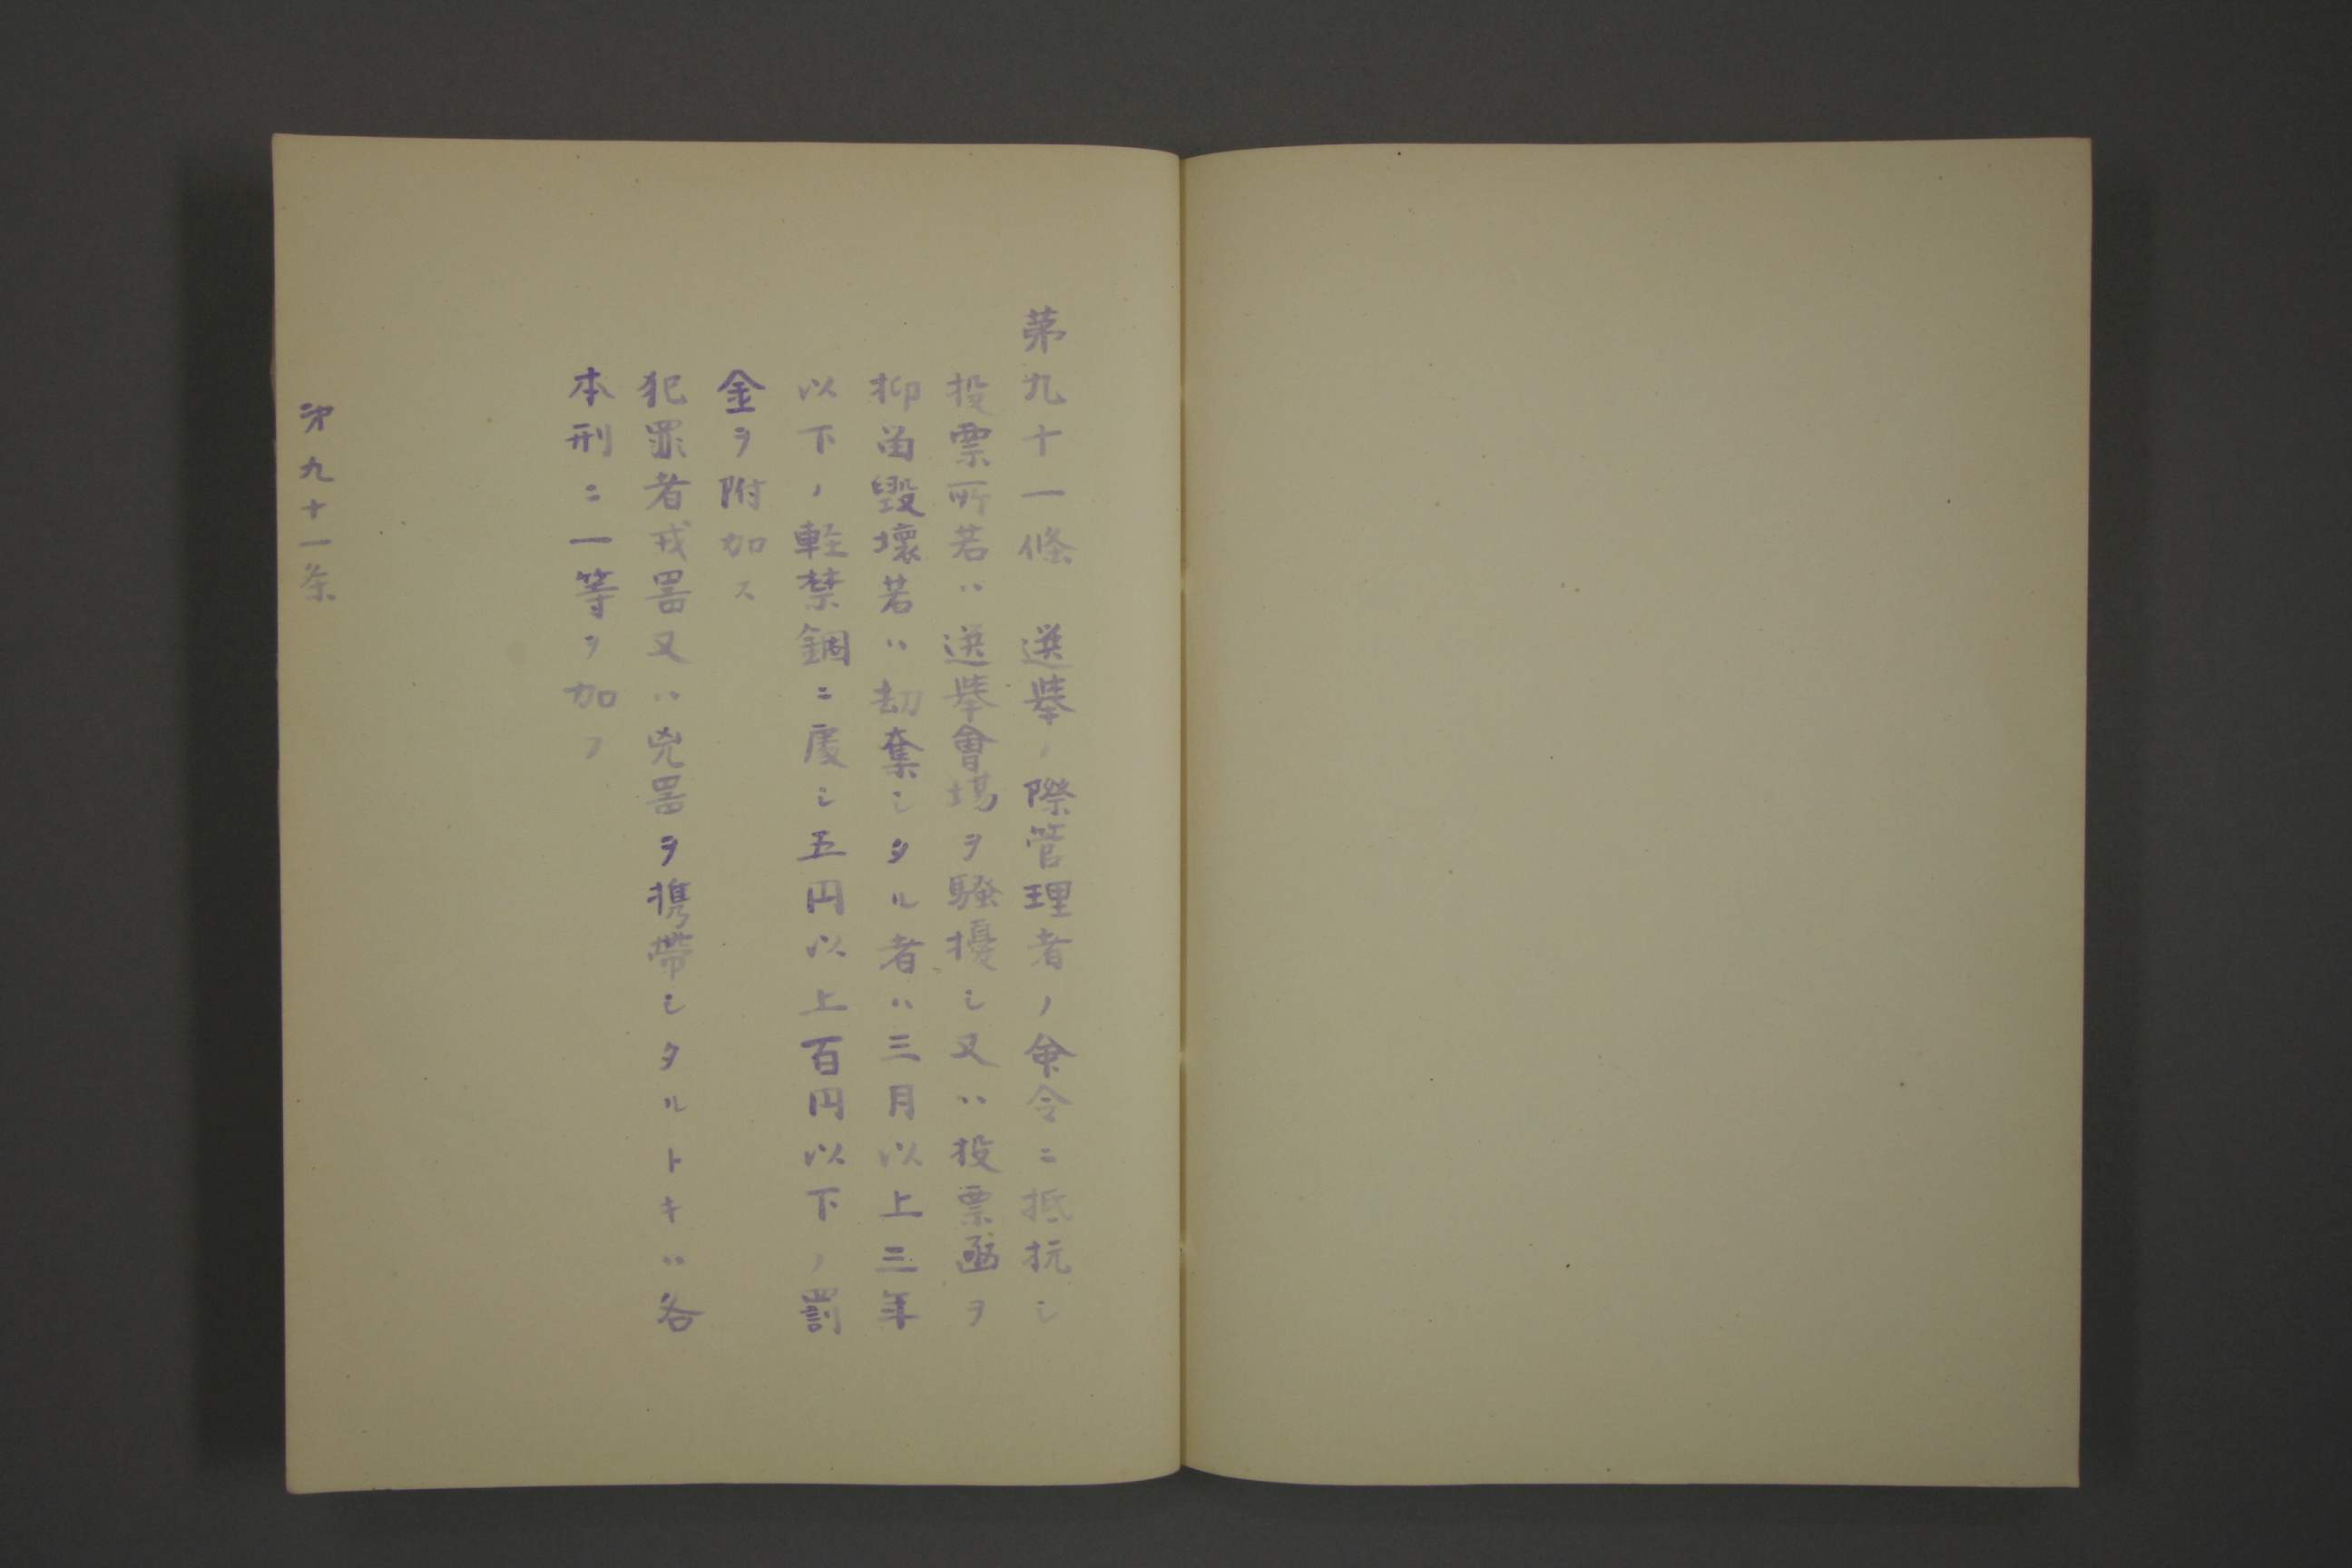 第九十一條　選擧ノ際管理者ノ命令ニ抵抗シ
投票所若ハ選擧會場ヲ騷擾シ又ハ投票凾ヲ
抑留毀壞若ハ刧奪シタル者ハ三月以上三年
以下ノ軽禁錮ニ處シ五円以上百円以下ノ罰
金ヲ附加ス
犯罪者戎噐又ハ兇噐ヲ携帶シタルトキハ各
本刑ニ一等ヲ加フ
第九十一条